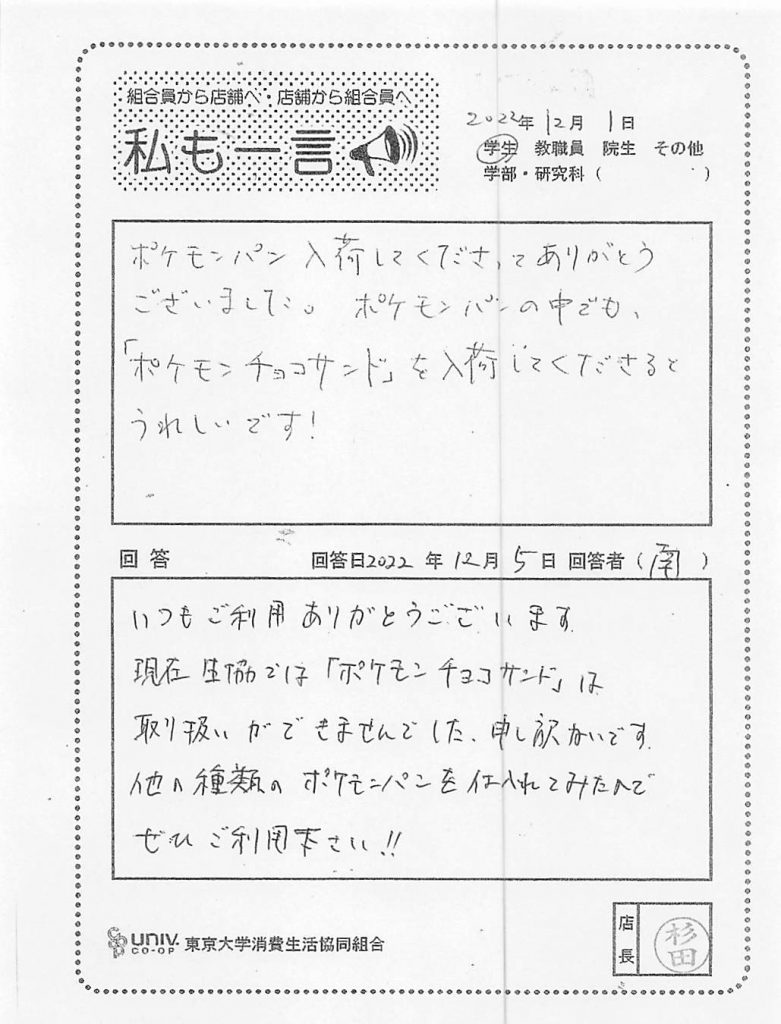 組合員から店舗へ・店舗から組合員へ
私も一言
2022年 12月 1日
学生 教職員 院生 その他
学部・研究科 ( )
ポケモンパン 入荷してくださってありがとう
ございました。 ポケモンパンの中でも、
「ポケモンチョコサンド」を入荷してくださると
うれしいです!
回答 回答日2022 年 12月 5日 回答者 (南)
いつもご利用ありがとうございます
現在生協では「ポケモンチョコサンド」は
取り扱いができませんでした、申し訳ないです
他の種類のポケモンパンを仕入れてみたので
ぜひご利用下さい!!
UNIV. CO-OP 東京大学消費生活協同組合
店長 杉田